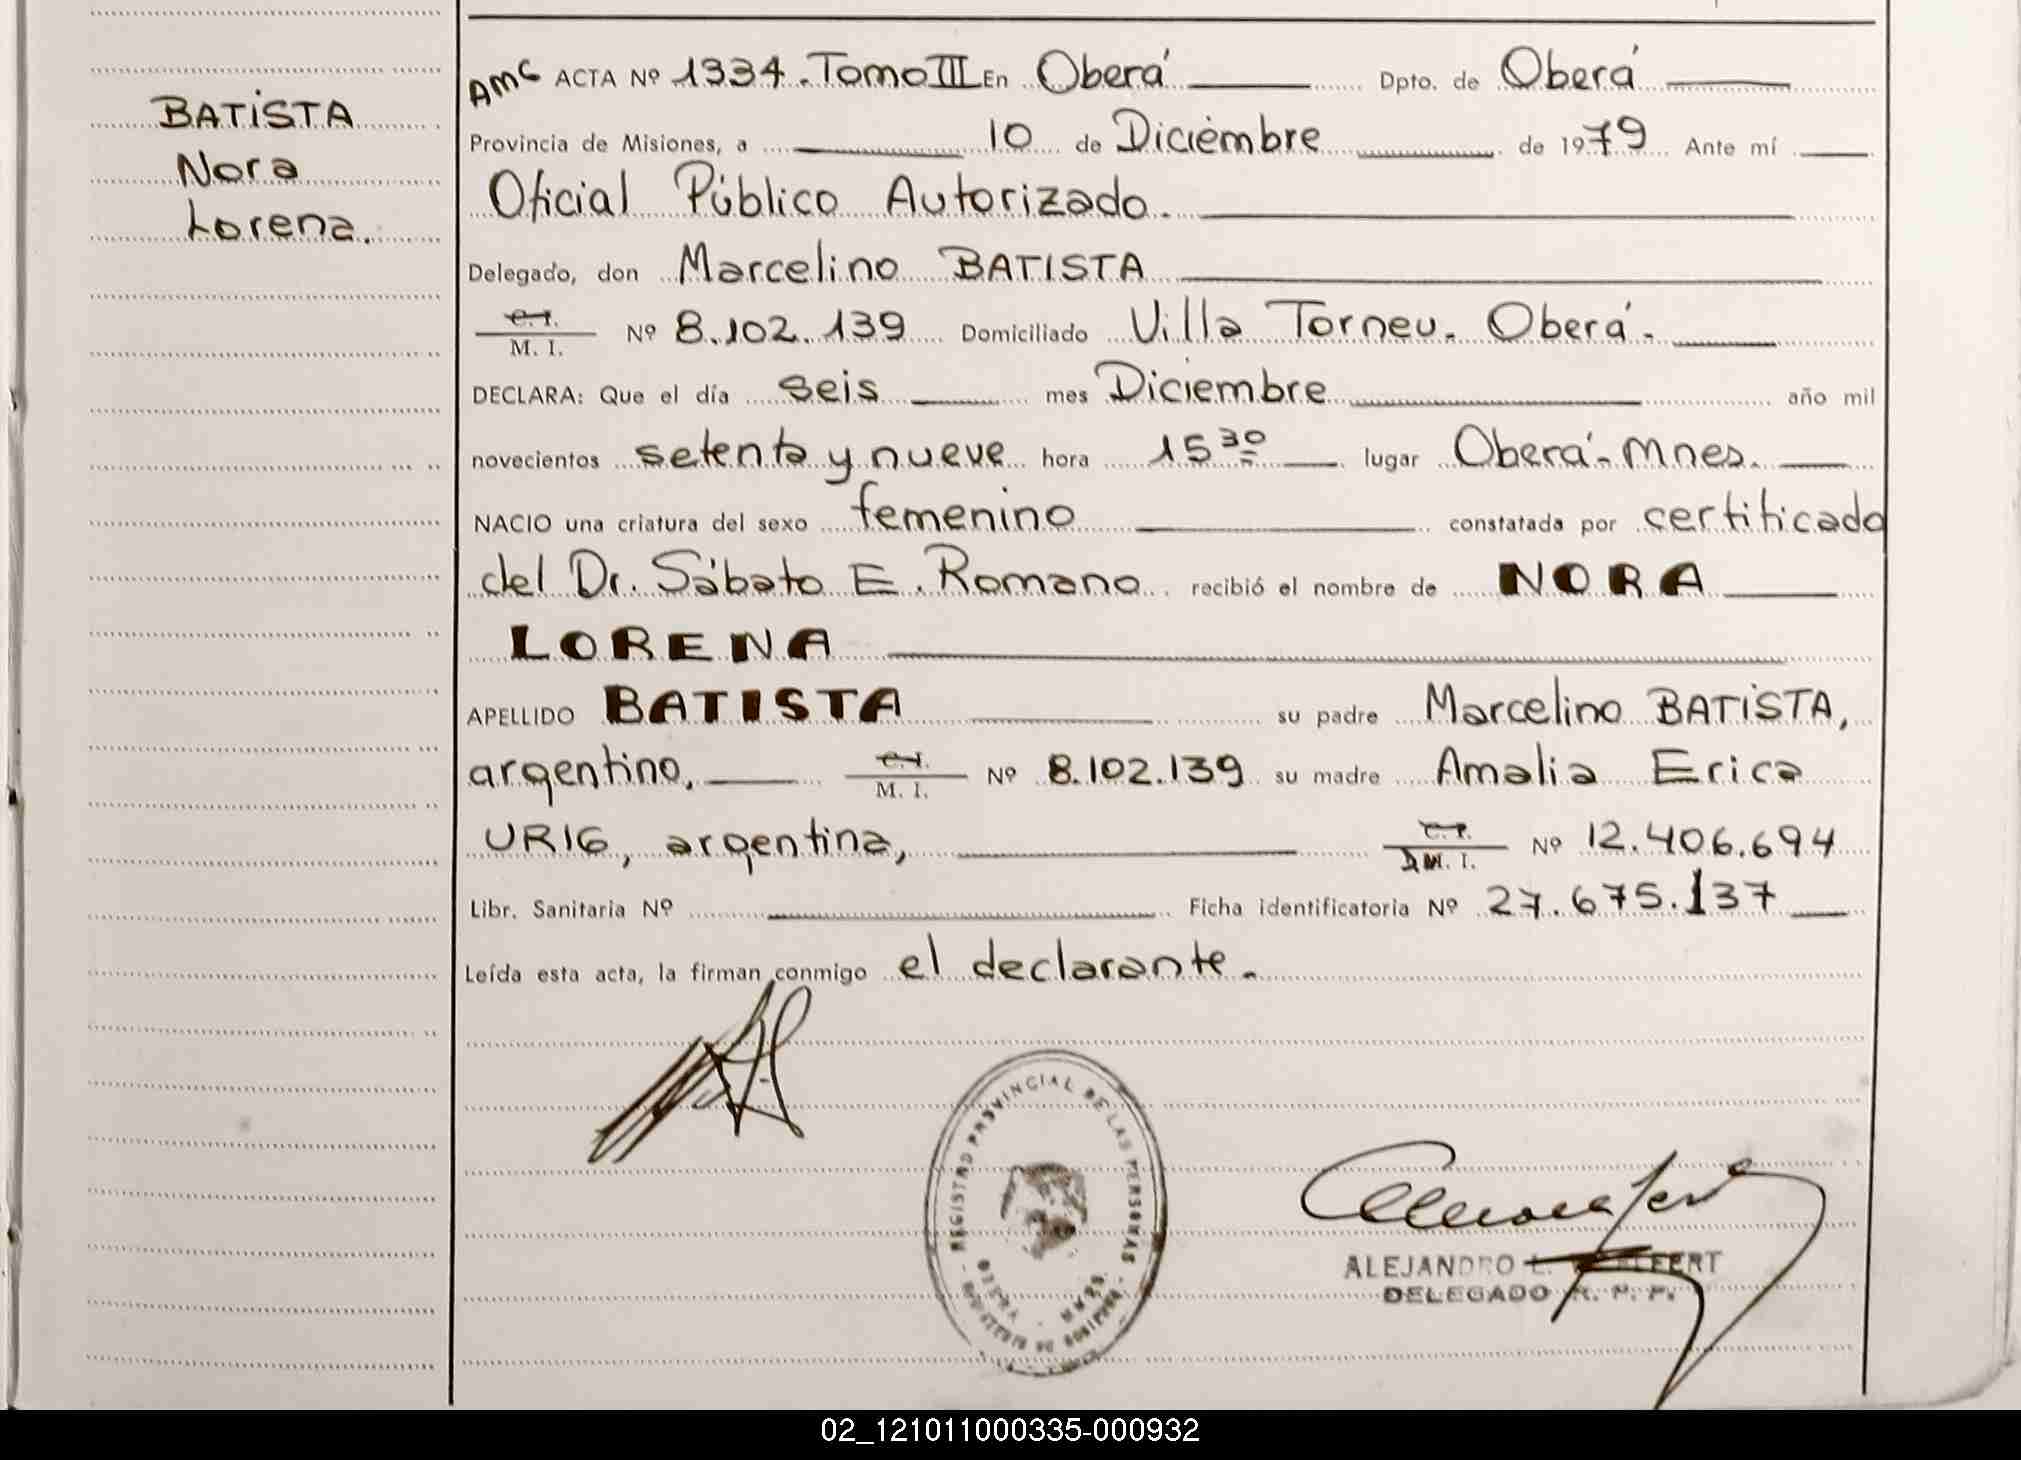 BATISTA
Nora
Lorena.
AMC ACTA Nº 1334. Tomo III En Oberá Dpto. de Oberá
Provincia de Misiones, a 10 de Diciembre de 1979 Ante mí
Oficial Público Autorizado.
Delegado, don Marcelino BATISTA
C.I.
M. I. Nº 8.102.139 Domiciliado Villa Torneu. Oberá.
DECLARA: Que el día seis mes Diciembre año mil
novecientos setenta y nueve hora 15 30 lugar Oberá-Mnes.
NACIO una criatura del sexo femenino constatada por certificado
del Dr. Sábato E. Romano recibió el nombre de NORA
LORENA
APELLIDO BATISTA su padre Marcelino BATISTA,
argentino, C.I. M. I. Nº 8.102.139 su madre Amalia Erica
URIG, argentina, C.I. M. I. Nº 12.406.694
Libr. Sanitaria Nº Ficha identificatoria Nº 27.675.137
Leída esta acta, la firman conmigo el declarante.
REGISTRO PROVINCIAL DE LAS PERSONAS
ALEJANDRO L.
DELEGADO R. P. P.
02_121011000335-000932